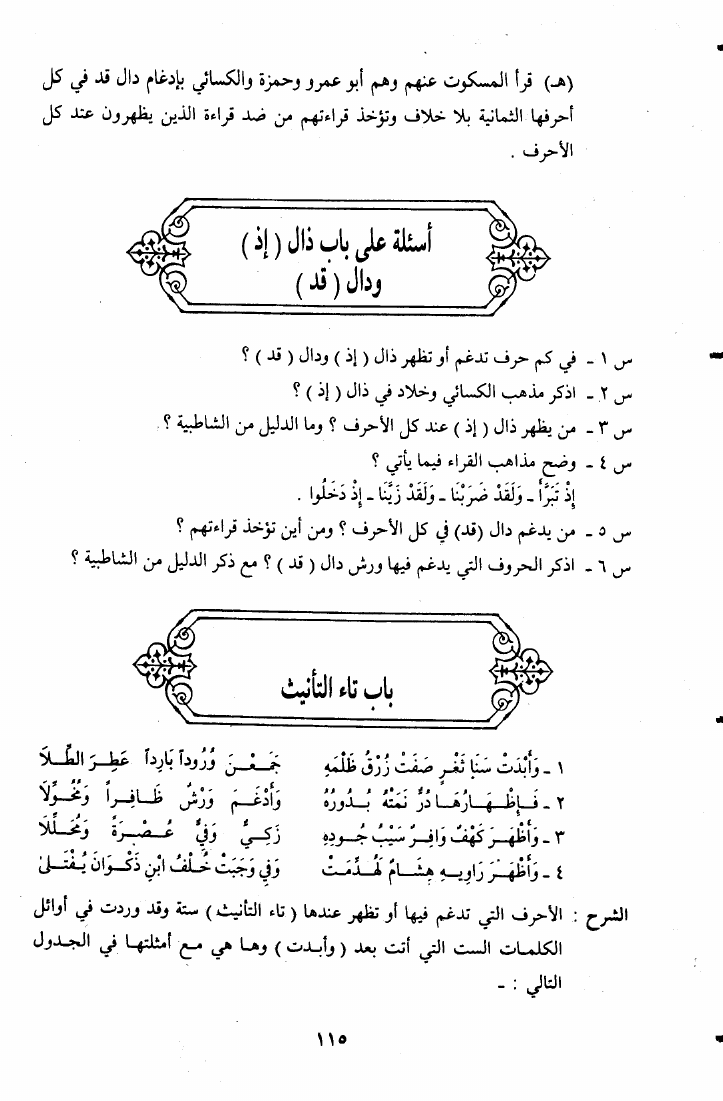 (هـ) قرأ المسكوت عنهم وهم أبو عمرو وحمزة والكسائي بإدغام دال قد في كل
أحرفها الثمانية بلا خلاف وتؤخذ قراءتهم من ضد قراءة الذين يظهرون عند كل
الأحرف .
أسئلة على باب ذال ( إذ )
ودال ( قد )
س ١ ـ في كم حرف تدغم أو تظهر ذال ( إذ ) ودال ( قد ) ؟
س ٢ ـ اذكر مذهب الكسائي وخلاد في ذال ( إذ ) ؟
س ٣ ـ من يظهر ذال ( إذ ) عند كل الأحرف ؟ وما الدليل من الشاطبية ؟ .
س ٤ ـ وضح مذاهب القراء فيما يأتي ؟
إِذْ تَبَرَّأَ ـ وَلَقَدْ ضَرَبْنَا ـ وَلَقَدْ زَيَّنَا ـ إِذْ دَخَلُوا .
س ٥ ـ من يدغم دال (قد) في كل الأحرف ؟ ومن أين تؤخذ قراءتهم ؟
س ٦ ـ اذكر الحروف التي يدغم فيها ورش دال ( قد ) ؟ مع ذكر الدليل من الشاطبية ؟
باب تاء التأنيث
١ ـ وَأَبْدَتْ سَنَا ثَغْرٍ صَفَتْ زُرْقُ ظَلْمِهِ جَمَعْنَ وُرُوداً بَارِداً عَطِرَ الطِّلَا
٢ ـ فَإِظْهَارُهَا دُرٌّ نَمَتْهُ بُدُورُهُ وَأَدْغَمَ وَرْشٌ ظَافِراً وَمُخَوَّلَا
٣ ـ وَأَظْهَرَ كَهْفٌ وَافِرٌ سَيْبُ جُودِهِ زَكِيٌّ وَفِيٌّ عُصْرَةً وَمُحَلَّلَا
٤ ـ وَأَظْهَرَ رَاوِيهِ هِشَامٌ لَهُدِّمَتْ وَفِي وَجَبَتْ خُلْفُ ابْنِ ذَكْوَانَ يُفْتَلَى
الشرح : الأحرف التي تدغم فيها أو تظهر عندها ( تاء التأنيث ) ستة وقد وردت في أوائل
الكلمات الست التي أتت بعد ( وأبدت ) وها هي مع أمثلتها في الجدول
التالي : ـ
١١٥